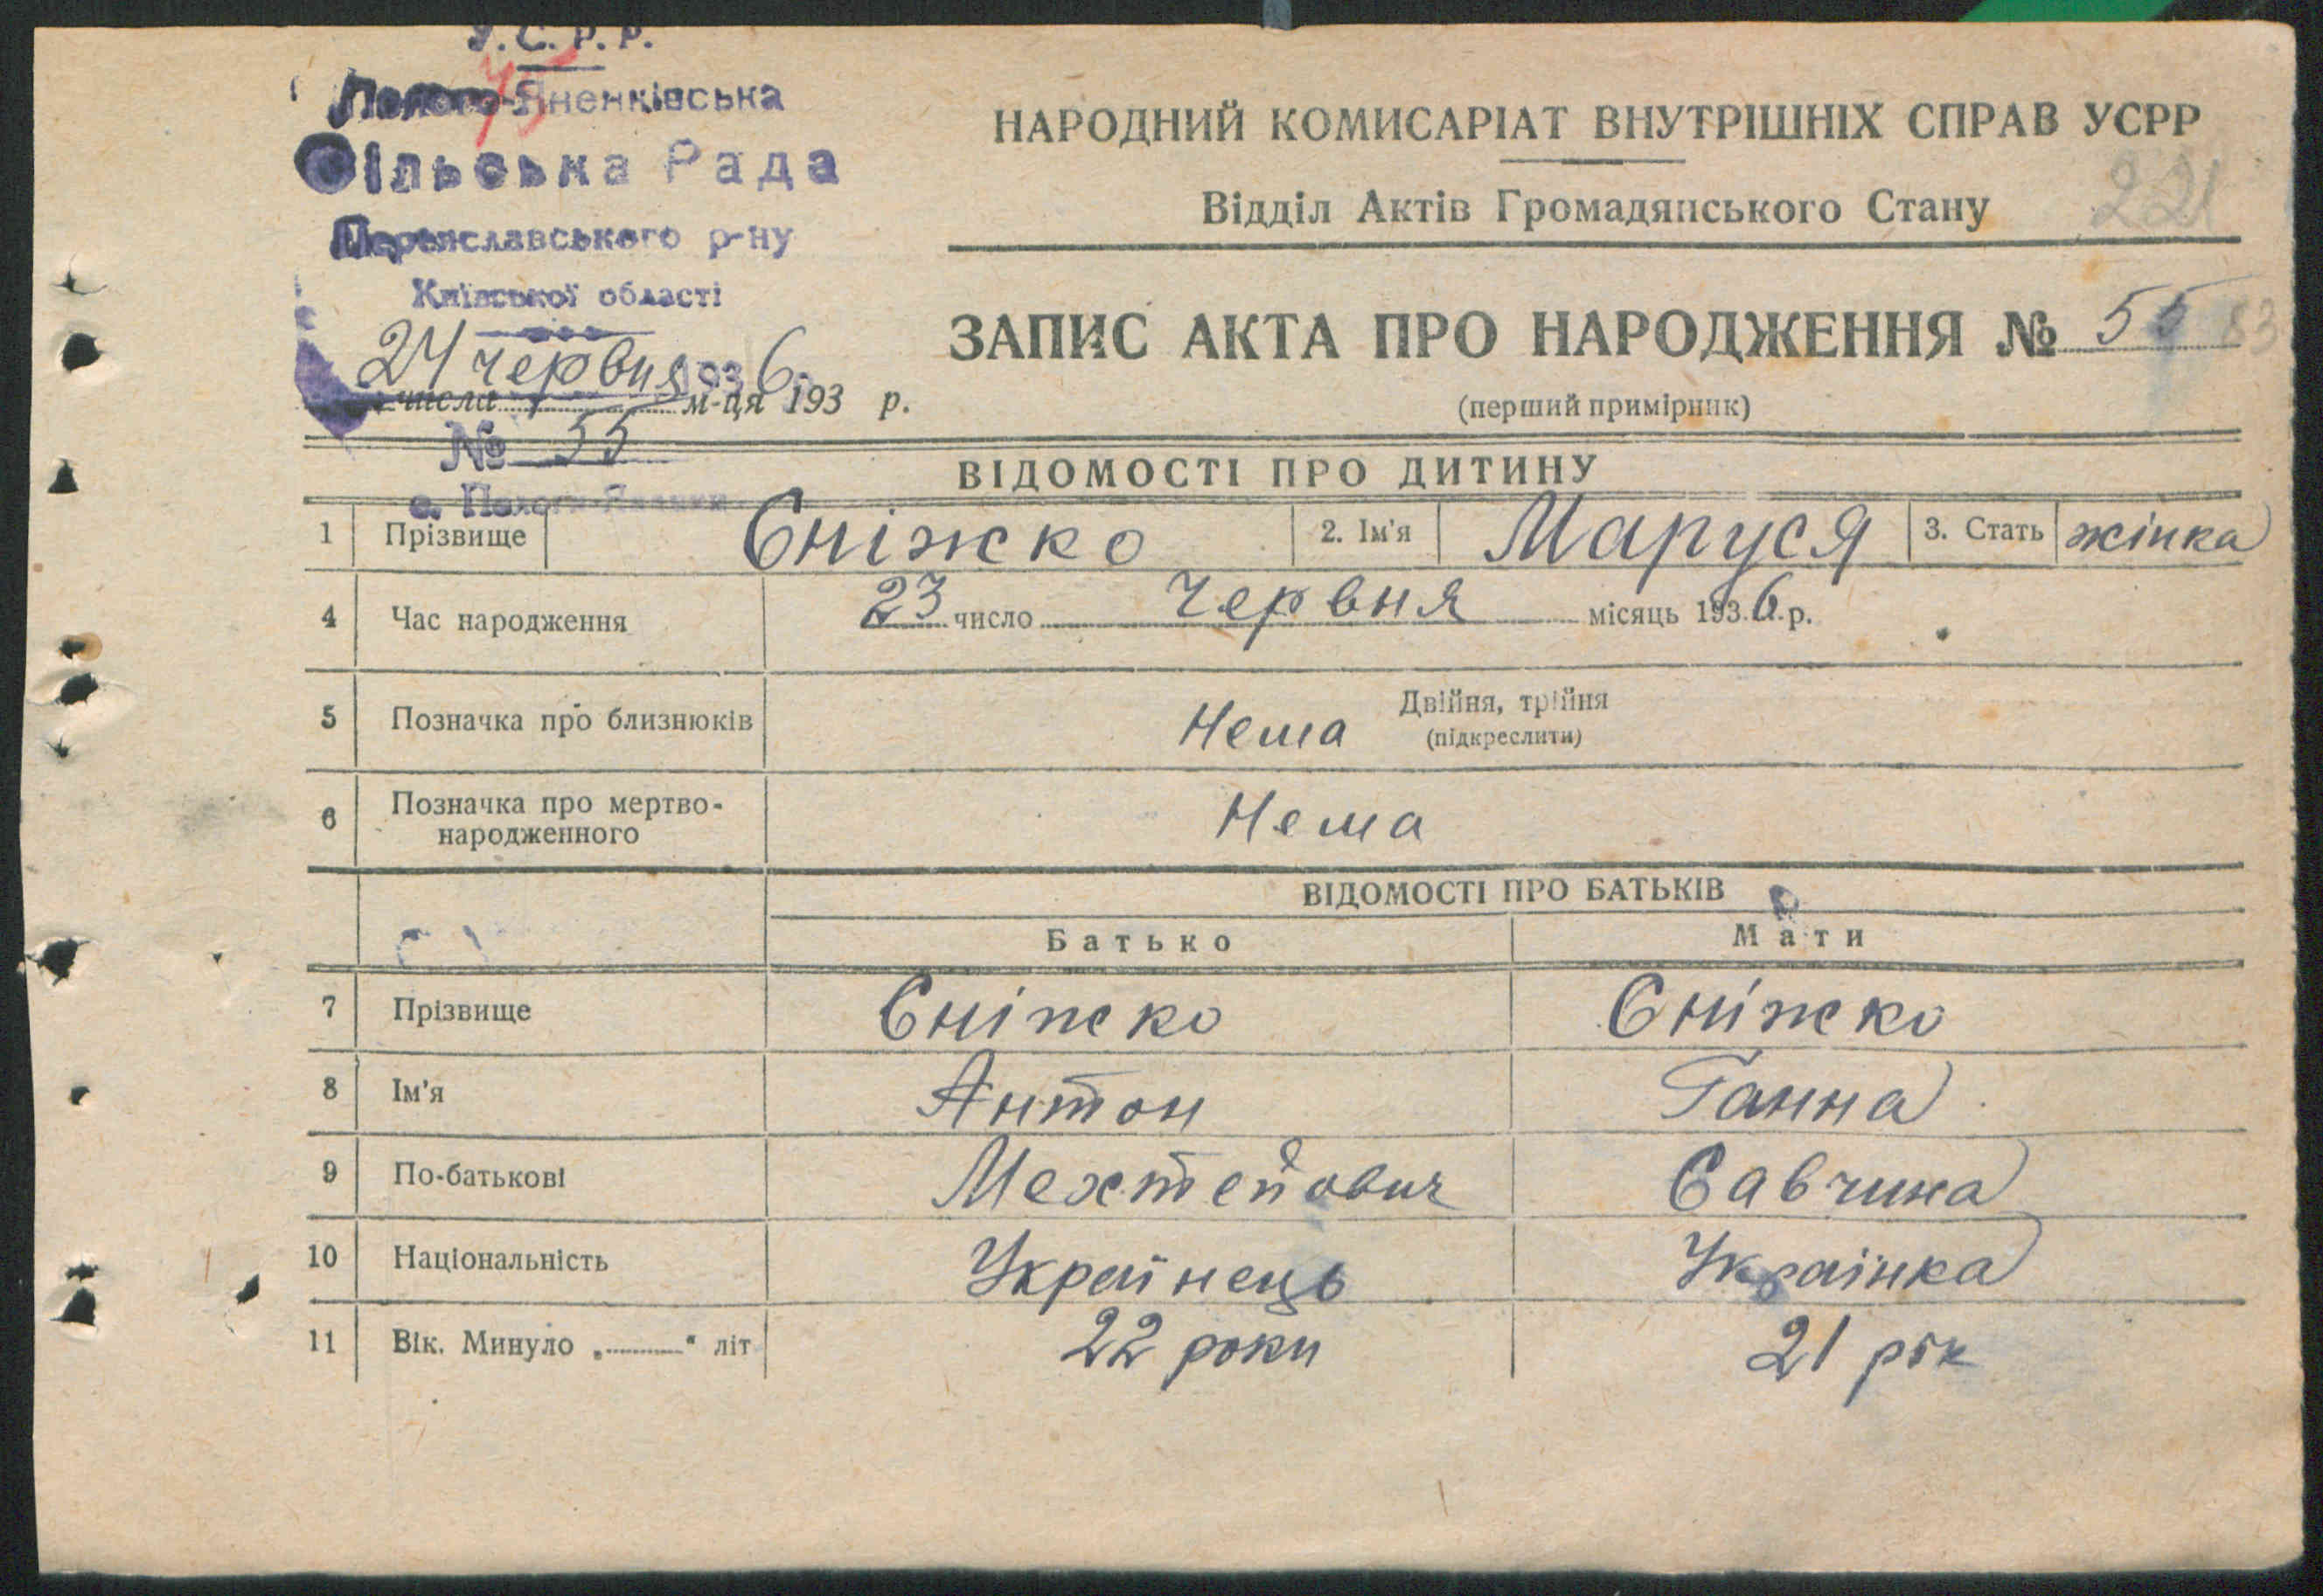 У.С.Р.Р.
45
Полого-Яненківська
Сільська Рада
Переяславського р-ну
Київської області
24 червня 1936
числа м-ця 193 р.
№ 55
с. Пологи-Яненки
НАРОДНИЙ КОМИСАРІАТ ВНУТРІШНІХ СПРАВ УСРР
Відділ Актів Громадянського Стану
221
ЗАПИС АКТА ПРО НАРОДЖЕННЯ № 55 83
(перший примірник)
ВІДОМОСТІ ПРО ДИТИНУ
1 Прізвище Сніжко 2. Ім'я Маруся 3. Стать жінка
4 Час народження 23 число червня місяць 1936 р.
5 Позначка про близнюків Нема Двійня, трійня
(підкреслити)
6 Позначка про мертво-
народженного Нема
ВІДОМОСТІ ПРО БАТЬКІВ
Батько Мати
7 Прізвище Сніжко Сніжко
8 Ім'я Антон Ганна
9 По-батькові Савчина
10 Національність Українець Українка
11 Вік. Минуло „ “ літ 22 роки 21 рік